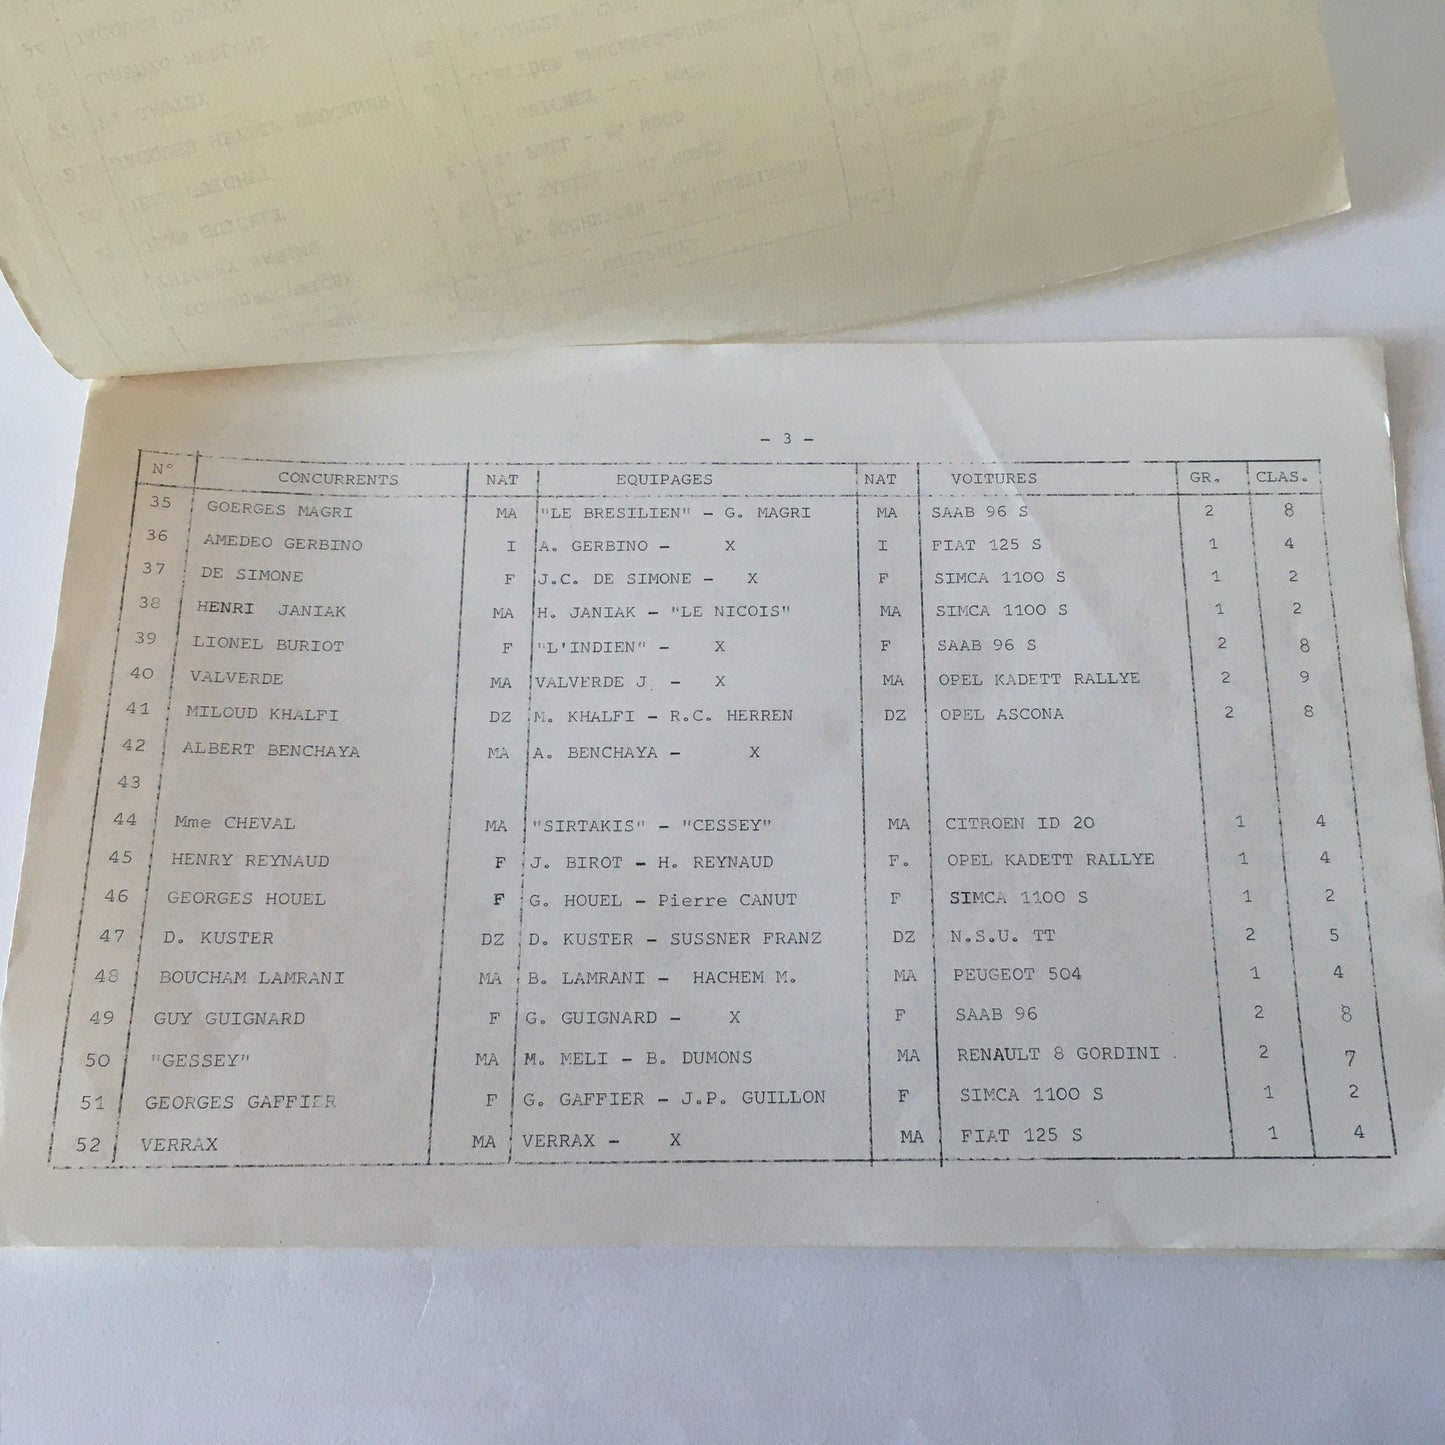 - 3 -
N° CONCURRENTS NAT EQUIPAGES NAT VOITURES GR. CLAS.
35 GOERGES MAGRI MA "LE BRESILIEN" - G. MAGRI MA SAAB 96 S 2 8
36 AMEDEO GERBINO I A. GERBINO - X I FIAT 125 S 1 4
37 DE SIMONE F J.C. DE SIMONE - X F SIMCA 1100 S 1 2
38 HENRI JANIAK MA H. JANIAK - "LE NICOIS" MA SIMCA 1100 S 1 2
39 LIONEL BURIOT F "L'INDIEN" - X F SAAB 96 S 2 8
40 VALVERDE MA VALVERDE J. - X MA OPEL KADETT RALLYE 2 9
41 MILOUD KHALFI DZ M. KHALFI - R.C. HERREN DZ OPEL ASCONA 2 8
42 ALBERT BENCHAYA MA A. BENCHAYA - X
43
44 Mme CHEVAL MA "SIRTAKIS" - "CESSEY" MA CITROEN ID 20 1 4
45 HENRY REYNAUD F J. BIROT - H. REYNAUD F. OPEL KADETT RALLYE 1 4
46 GEORGES HOUEL F G. HOUEL - Pierre CANUT F SIMCA 1100 S 1 2
47 D. KUSTER DZ D. KUSTER - SUSSNER FRANZ DZ N.S.U. TT 2 5
48 BOUCHAM LAMRANI MA B. LAMRANI - HACHEM M. MA PEUGEOT 504 1 4
49 GUY GUIGNARD F G. GUIGNARD - X F SAAB 96 2 8
50 "GESSEY" MA M. MELI - B. DUMONS MA RENAULT 8 GORDINI . 2 7
51 GEORGES GAFFIER F G. GAFFIER - J.P. GUILLON F SIMCA 1100 S 1 2
52 VERRAX MA VERRAX - X MA FIAT 125 S 1 4